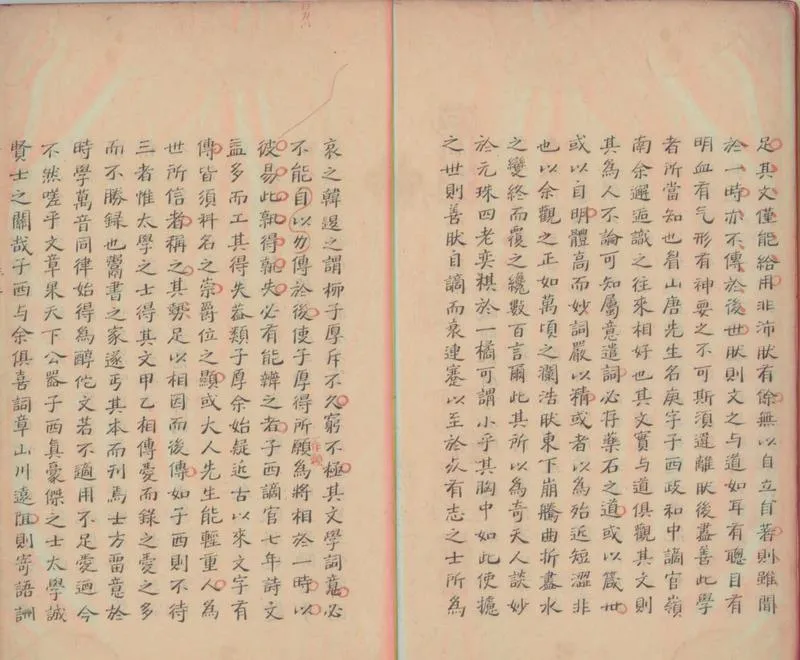 足其文僅能給用非沛肰有餘無以自立自著則雖聞
於一時亦不傳於後世肰則文之與道如耳有聰目有
明血有气形有神要之不可斯須遑離肰後盡善此學
者所當知也眉山唐先生名庚字子西政和中謫官嶺
南余邂逅識之往來相好也其文實与道俱觀其文則
其為人不論可知屬意遣詞必存藥石之道或以箴世
或以自明體高而妙詞嚴以精或者以為殆近短澀非
也以余觀之正如萬頃之瀾浩肰東下崩騰曲折盡水
之變終而覆之纔數百言爾此其所以為奇天人談妙
於元珠四老奕棋於一橘可謂小乎其胸中如此使攄
之世則善肰自謫而哀連蹇以至於有志之士所為
哀之韓退之謂柳子厚斥不久窮不極其文學詞意必
不能自以力傳於後使子厚得所願為將相於一時以
彼易此孰得孰失必有能辨之者子西謫官七年詩文
益多而工其得失葢類子厚余始疑近古以來文字有
傳皆須科名之崇爵位之顯或大人先生能輕重人為
世所信者稱之其勢足以相因而後傳如子西則不待
三者惟太學之士得其文甲乙相傳愛而錄之愛之多
而不勝録也鬻書之家遂丐其本而刊焉士方留意於
時學萬音同律始得為醇佗文若不適用不足愛迺今
不然嗟乎文章果天下公器子西真豪傑之士太學誠
賢士之關哉子西与余俱喜詞章山川遠阻則寄語詶